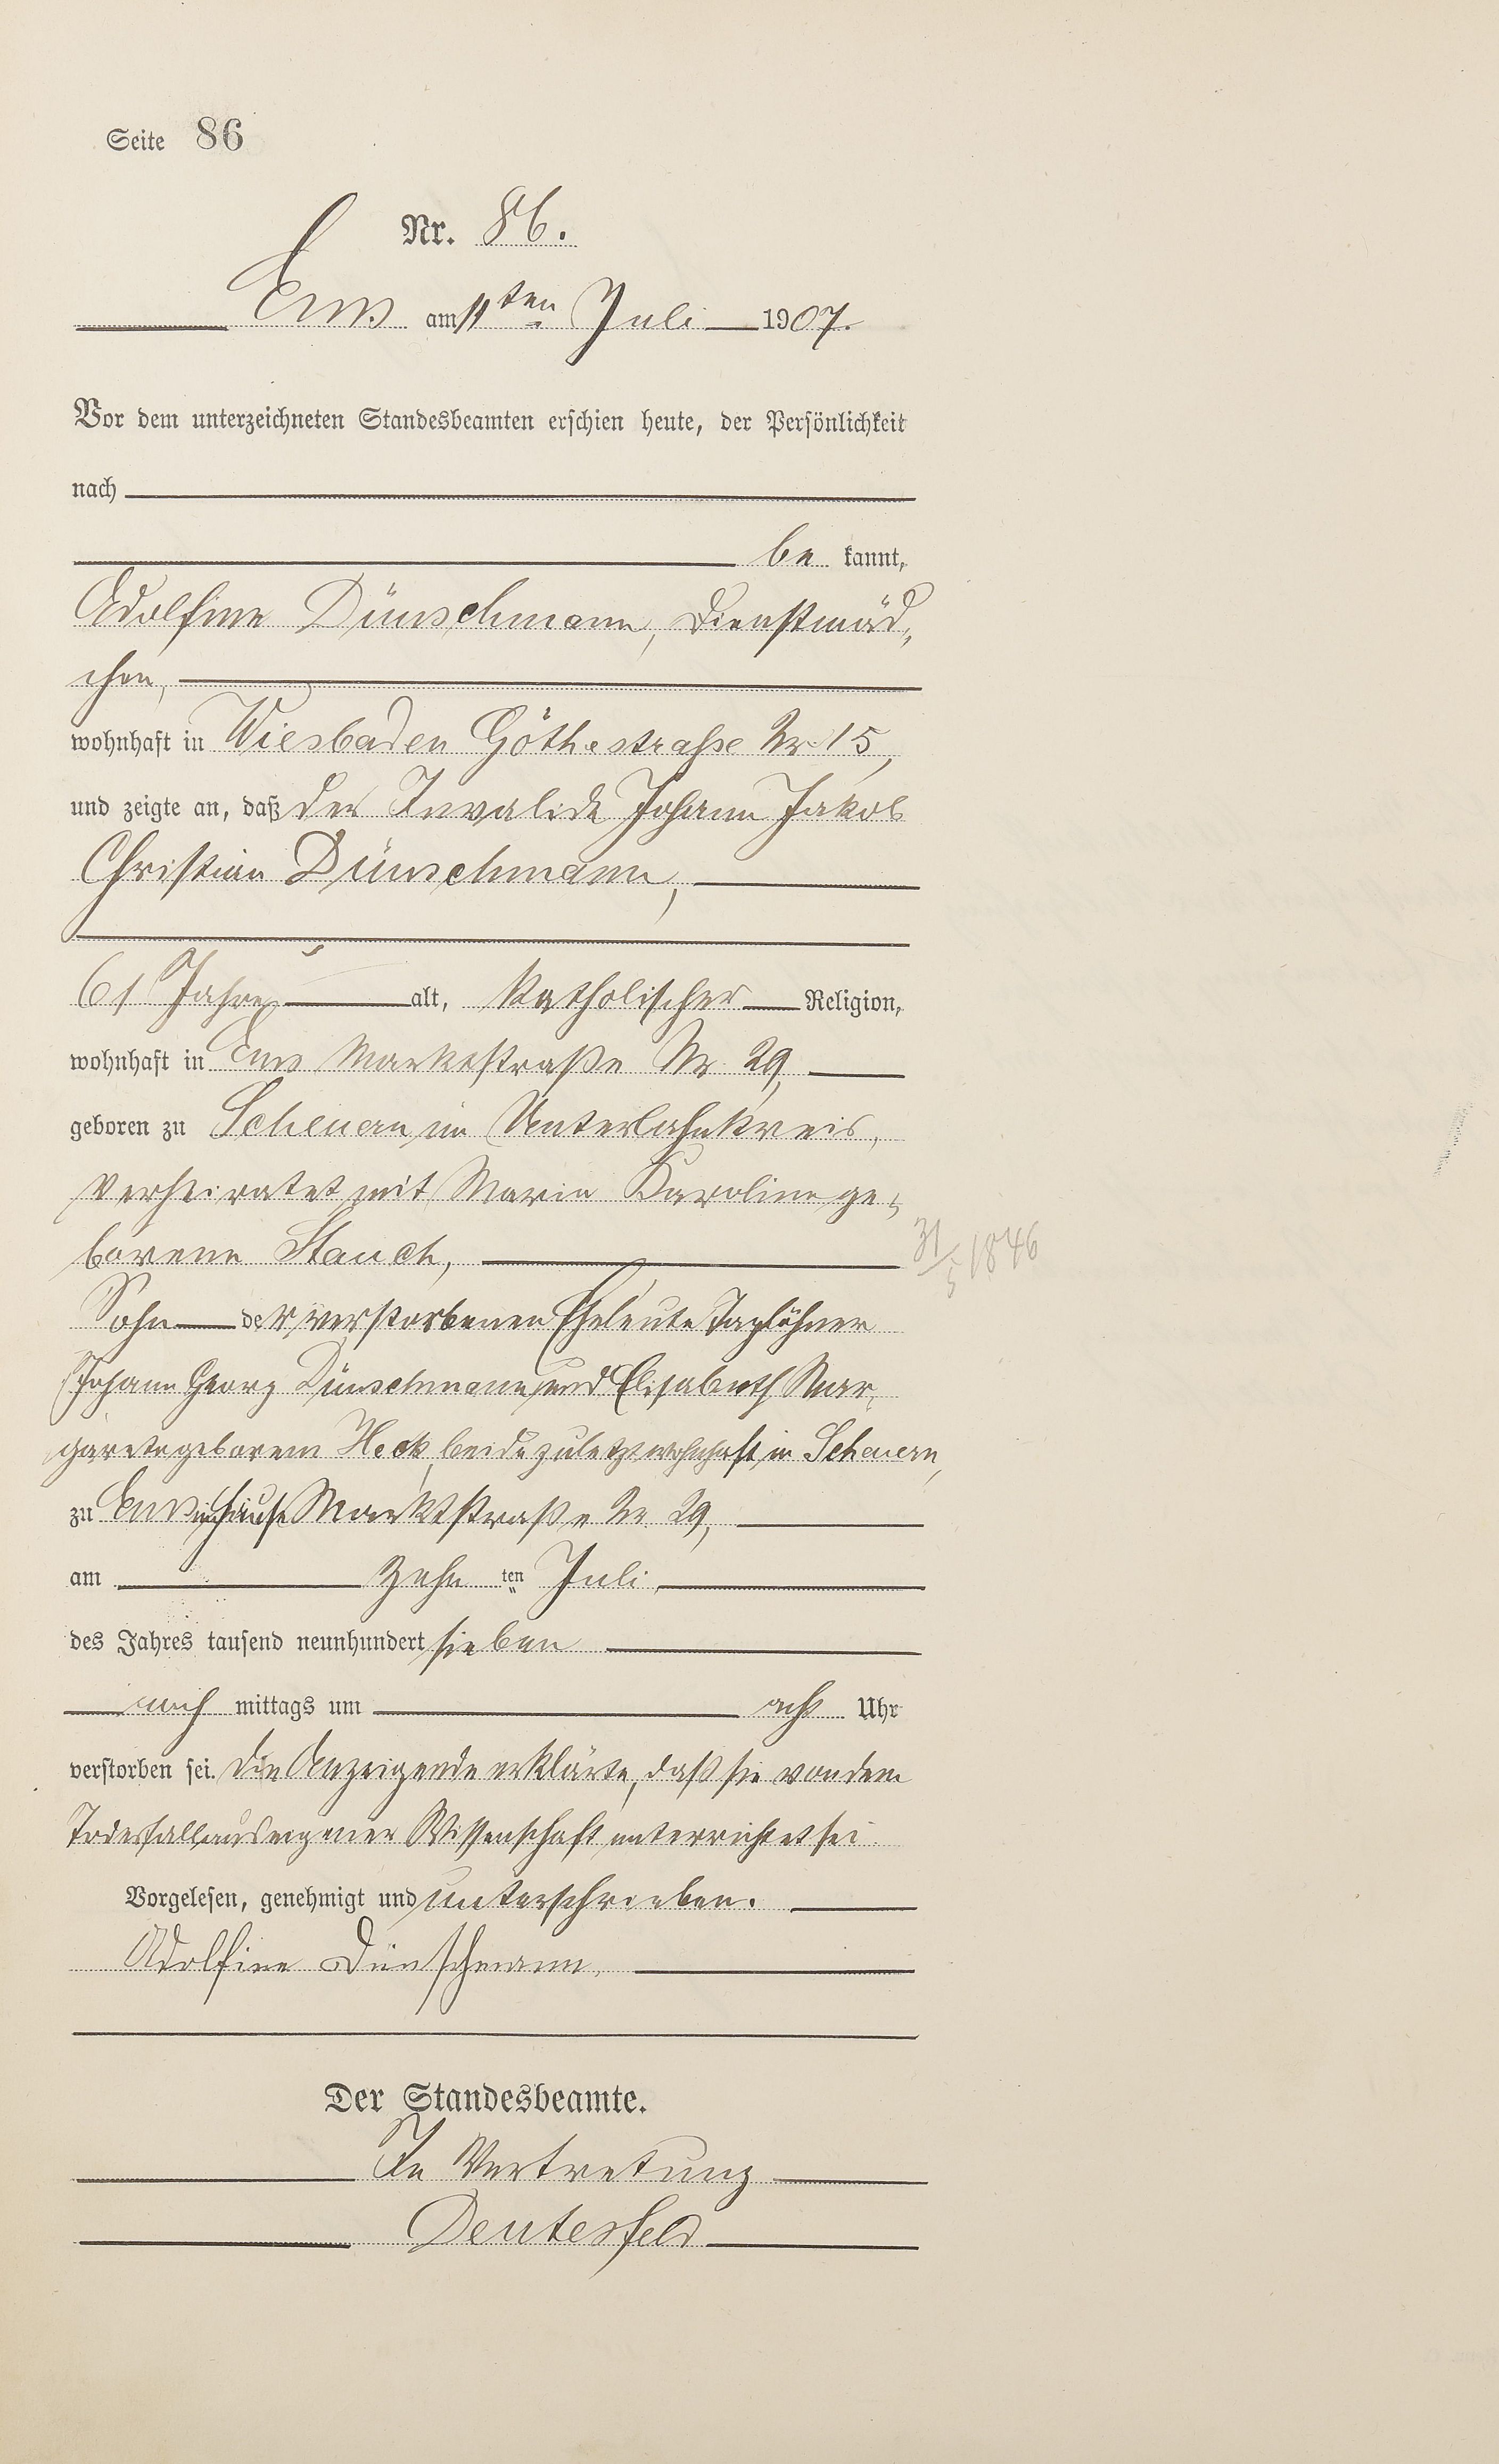 Seite 86
Nr. 86.
Ems am 11ten Juli 1907.
Vor dem unterzeichneten Standesbeamten erschien heute, der Persönlichkeit
nach
be kannt,
Adolfine Dünschmann, Dienstmäd„
chen,
wohnhaft in Wiesbaden Göthestraße Nr. 15,
und zeigte an, daß der Invalide Johann Jakob
Christian Dünschmann,
61 Jahre alt, katholischer Religion,
wohnhaft in Ems Marktstraße Nr. 29,
geboren zu Scheuern im Unterlahnkreis,
verheiratet mit Maria Karoline ge„
borene Stauch,
31/5 1846
Sohn der verstorbenen Eheleute Taglöhner
Johann Georg Dünschmann und Elisabeth Mar„
garete geborene Heck, beide zuletzt wohnhaft in Scheuern,
zu Ems im Hause Marktstraße Nr. 29,
am zehn ten Juli,
des Jahres tausend neunhundert sieben
nach mittags um acht Uhr
verstorben sei. Die Anzeigende erklärte, daß sie von dem
Todesfall aus eigener Wissenschaft unterrichtet sei.
Vorgelesen, genehmigt und unterschrieben.
Adolfine Dünschmann,
Der Standesbeamte.
In Vertretung
Deutesfeld